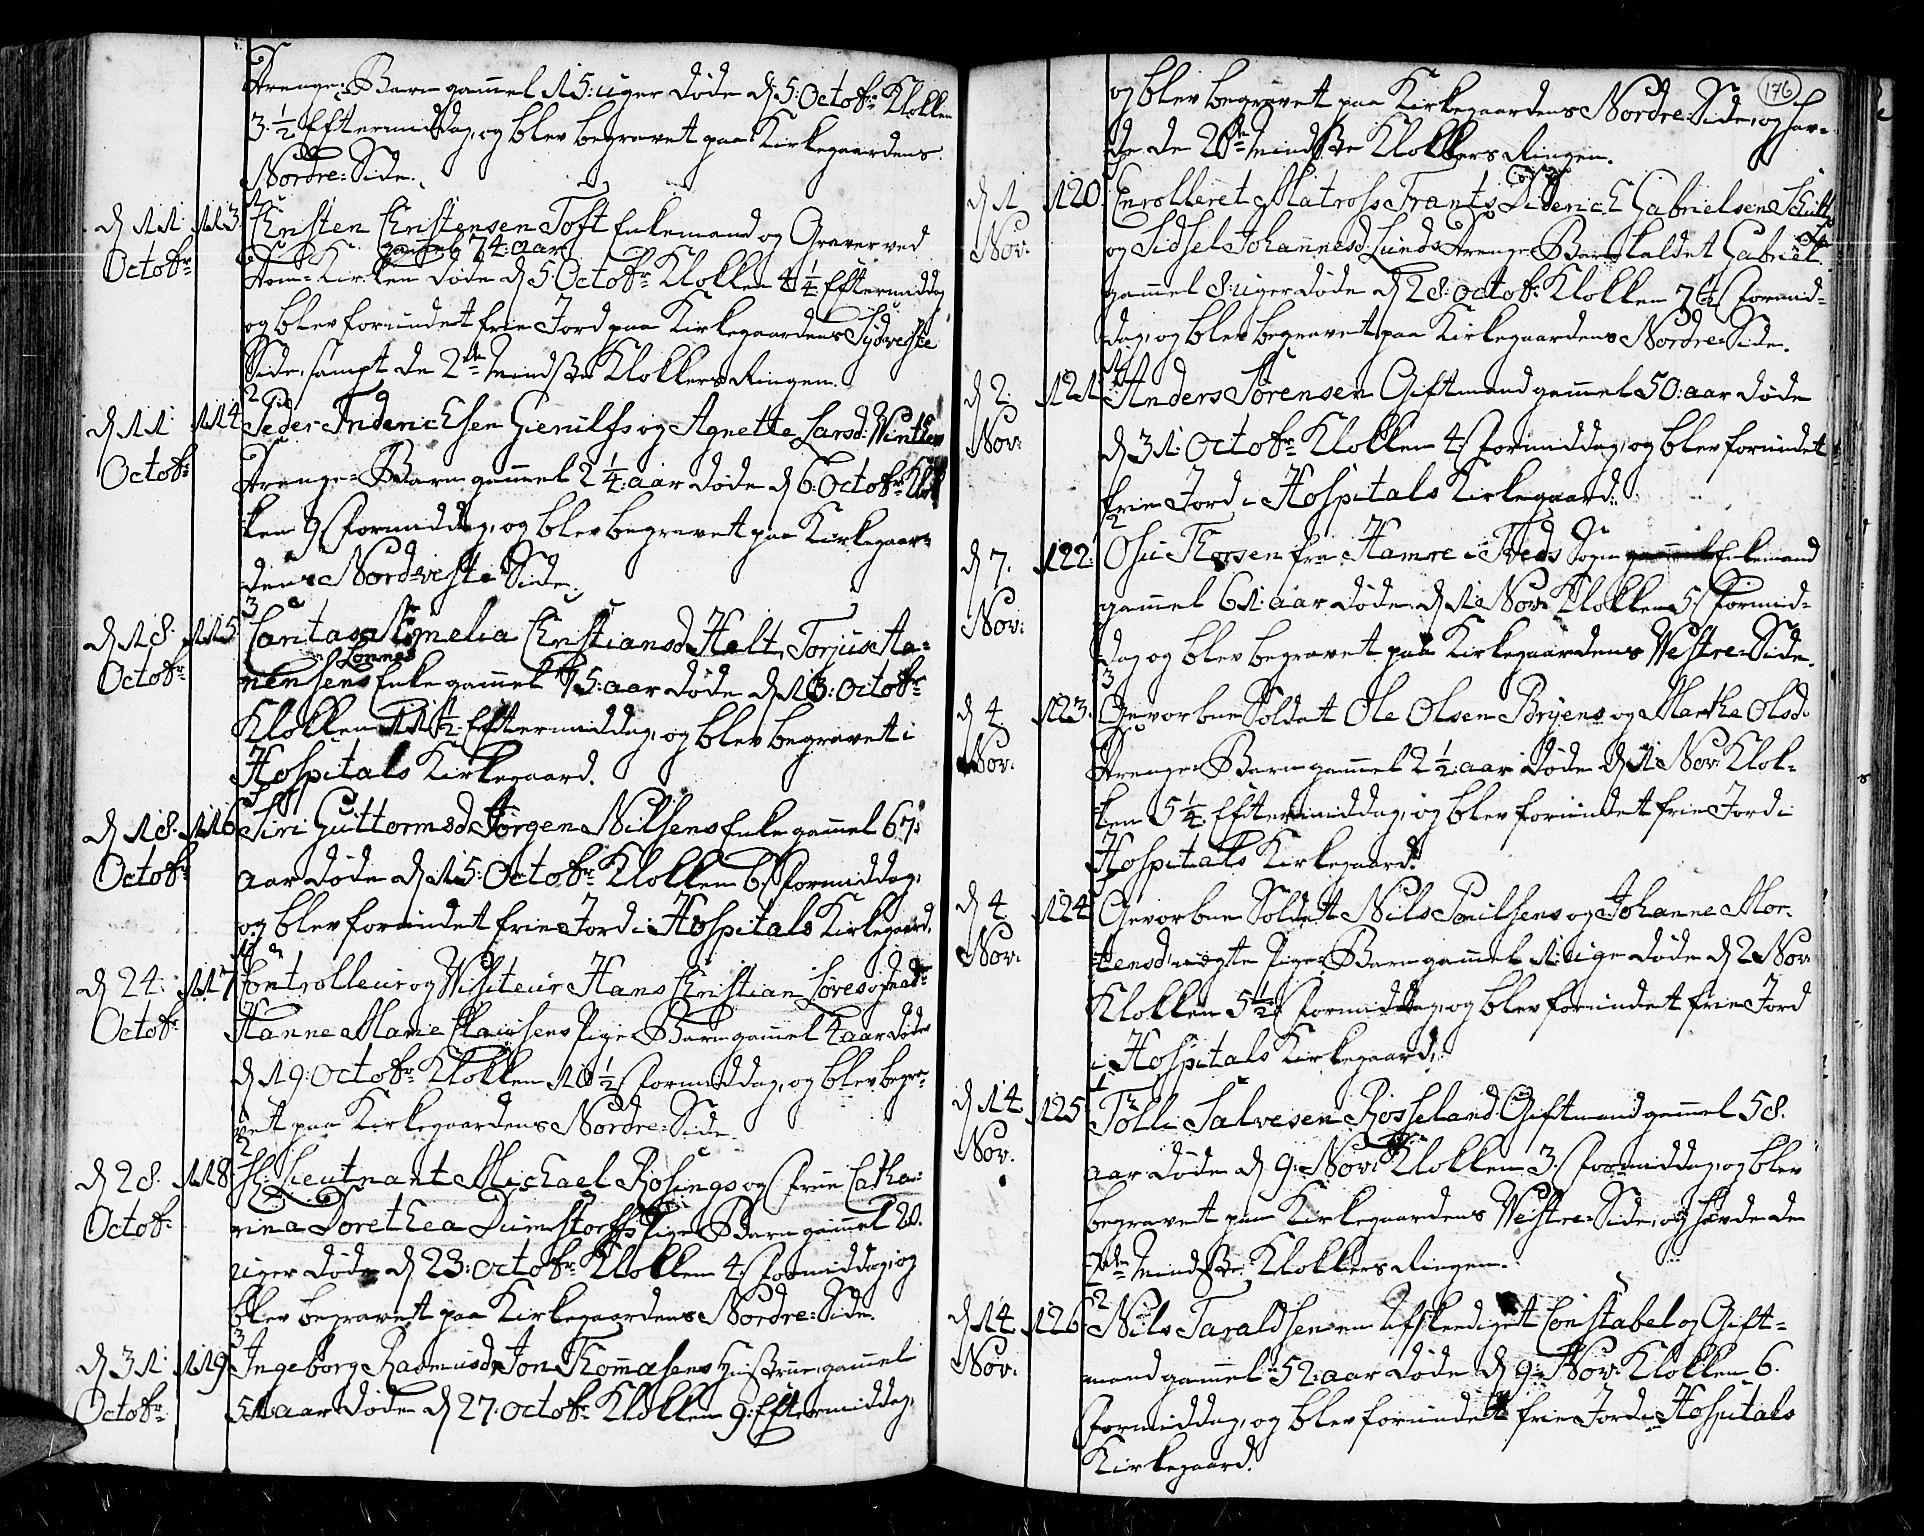 Drenge-Barn gammel 15: uger døde d. 5: Octobr: Klokken
3 1/2 Eftermiddag, og blev begravet paa Kirkegaardens
Nordre-Side.
d 11: 113. Christen Christensen Toft Enkemand og Graver ved
gammel 74: aar
Octobr: Dom-Kirken døde d 5 Octobr: Klokken 4 1/4 Eftermiddag
og blev forundet frie Jord paa Kirkegaardens Sydveste
Side, sampt de 2de mindste Klokkers Ringen.
2
d 11: 114 Peder Friderichsen Gieruldfs og Agnette Larsd: Winthers
Octobr: Drenge-Barn gammel 2 1/4: aar døde d 6: Octobr: Klok
ken 9 Formiddag, og blev begravet paa Kirkegaar-
dens Nordveste Side.
3
d 18. 115 Caritas Cornelia Christiansd: Halt, Torjus Ha-
Lonnes
Octobr: nensens Enke gammel 75: aar døde d 13: Octobr:
Klokken 11 1/2 Eftermiddag, og blev begravet i
Hospitals Kirkegaard.
d 18. 116 Siri Guttormsd: Jørgen Nilsens Enke gammel 67:
Octobr: aar døde d 15: Octobr: Klokken 6: Formiddag,
og blev forundet frie Jord i Hospitals Kirkegaard.
d 24: 117 Controlleur og Visiteur Hans Christian
Octobr: Hanne Marie Clausens Pige-Barn gammel 4 aar døde
d 19: Octobr: Klokken 10 1/2 Formiddag, og blev begra-
vet paa Kirkegaardens Nordre-Side.
2
d 28. 118 Hr: Lieutnant Michael Rosings og Frue Catha-
Octobr: rina Dorethea Dumstorfs Pige-Barn gammel 20.
uger døde d 23: Octobr: Klokken 4: Formiddag, og
blev begravet paa Kirkegaardens Nordre-Side.
3
d 31: 119 Ingeborg Rasmusdr Jon Thomasens Hustrue, gammel
Octobr: 51 aar døde d 27. Octobr: Klokken 9: Eftermiddag,
176
og blev begravet paa Kirkegaardens Nordre-Side, og hav-
de de 2de mindste Klokkers Ringen.
d 1 120 Enrolleret Matrosß Frants Diderich Gabrielsen Schultz
Nov: og Sidsel Johannesd: Lunds Drenge-Barn kaldet Gabriel
gammel 8: uger døde d 28: Octobr: Klokken 7 1/2 Formid-
dag, og blev begravet paa Kirkegaardens Nordre-Side.
d 2. 121 Anders Sørensen Giftmand gammel 50: aar døde
Nov: d 31: Octobr: Klokken 4: Formiddag, og blev forundet
frie Jord i Hospitals Kirkegaard.
2
d 7. 122: Osu Thorsen fra Hamre i Sogn Enkemand
Nov: gammel 61: aar døde d 1 Nov: Klokken 5: Formid-
dag og blev begravet paa Kirkegaardens Vestre-Side.
3
d 4. 123. Gevorben Soldat Ole Olsen Bryens og Marthe Olsd:
Nov: Drenge-Barn gammel 2 1/2: aar døde d 1 Nov: Klok-
ken 5 1/4 Eftermiddag, og blev forundet frie Jord i
Hospitals Kirkegaard.
d 4. 124 Gevorben Soldat Nils Poulsens og Johanne Mor-
Nov: tensd: uegte Pige-Barn gammel 1: uge døde d 2 Nov:
Klokken 5 1/2 Formiddag, og blev forundet frie Jord
i Hospitals Kirkegaard.
1
d 14. 125 Tølli Salvesen Rosseland Giftmand gammel 58.
Nov: aar døde d 9: Nov: Klokken 3: Formiddag, og blev
begravet paa Kirkegaardens Vestre-Side, og havde de
2de mindste Klokkers Ringen.
2
d 14. 126 Nils Taraldsen en Afskediget Constabel og Gift-
Nov: mand gammel 52: aar døde d 9: Nov: Klokken 6.
Formiddag, og blev forundet frie Jord i Hospitals
Kirkegaard.